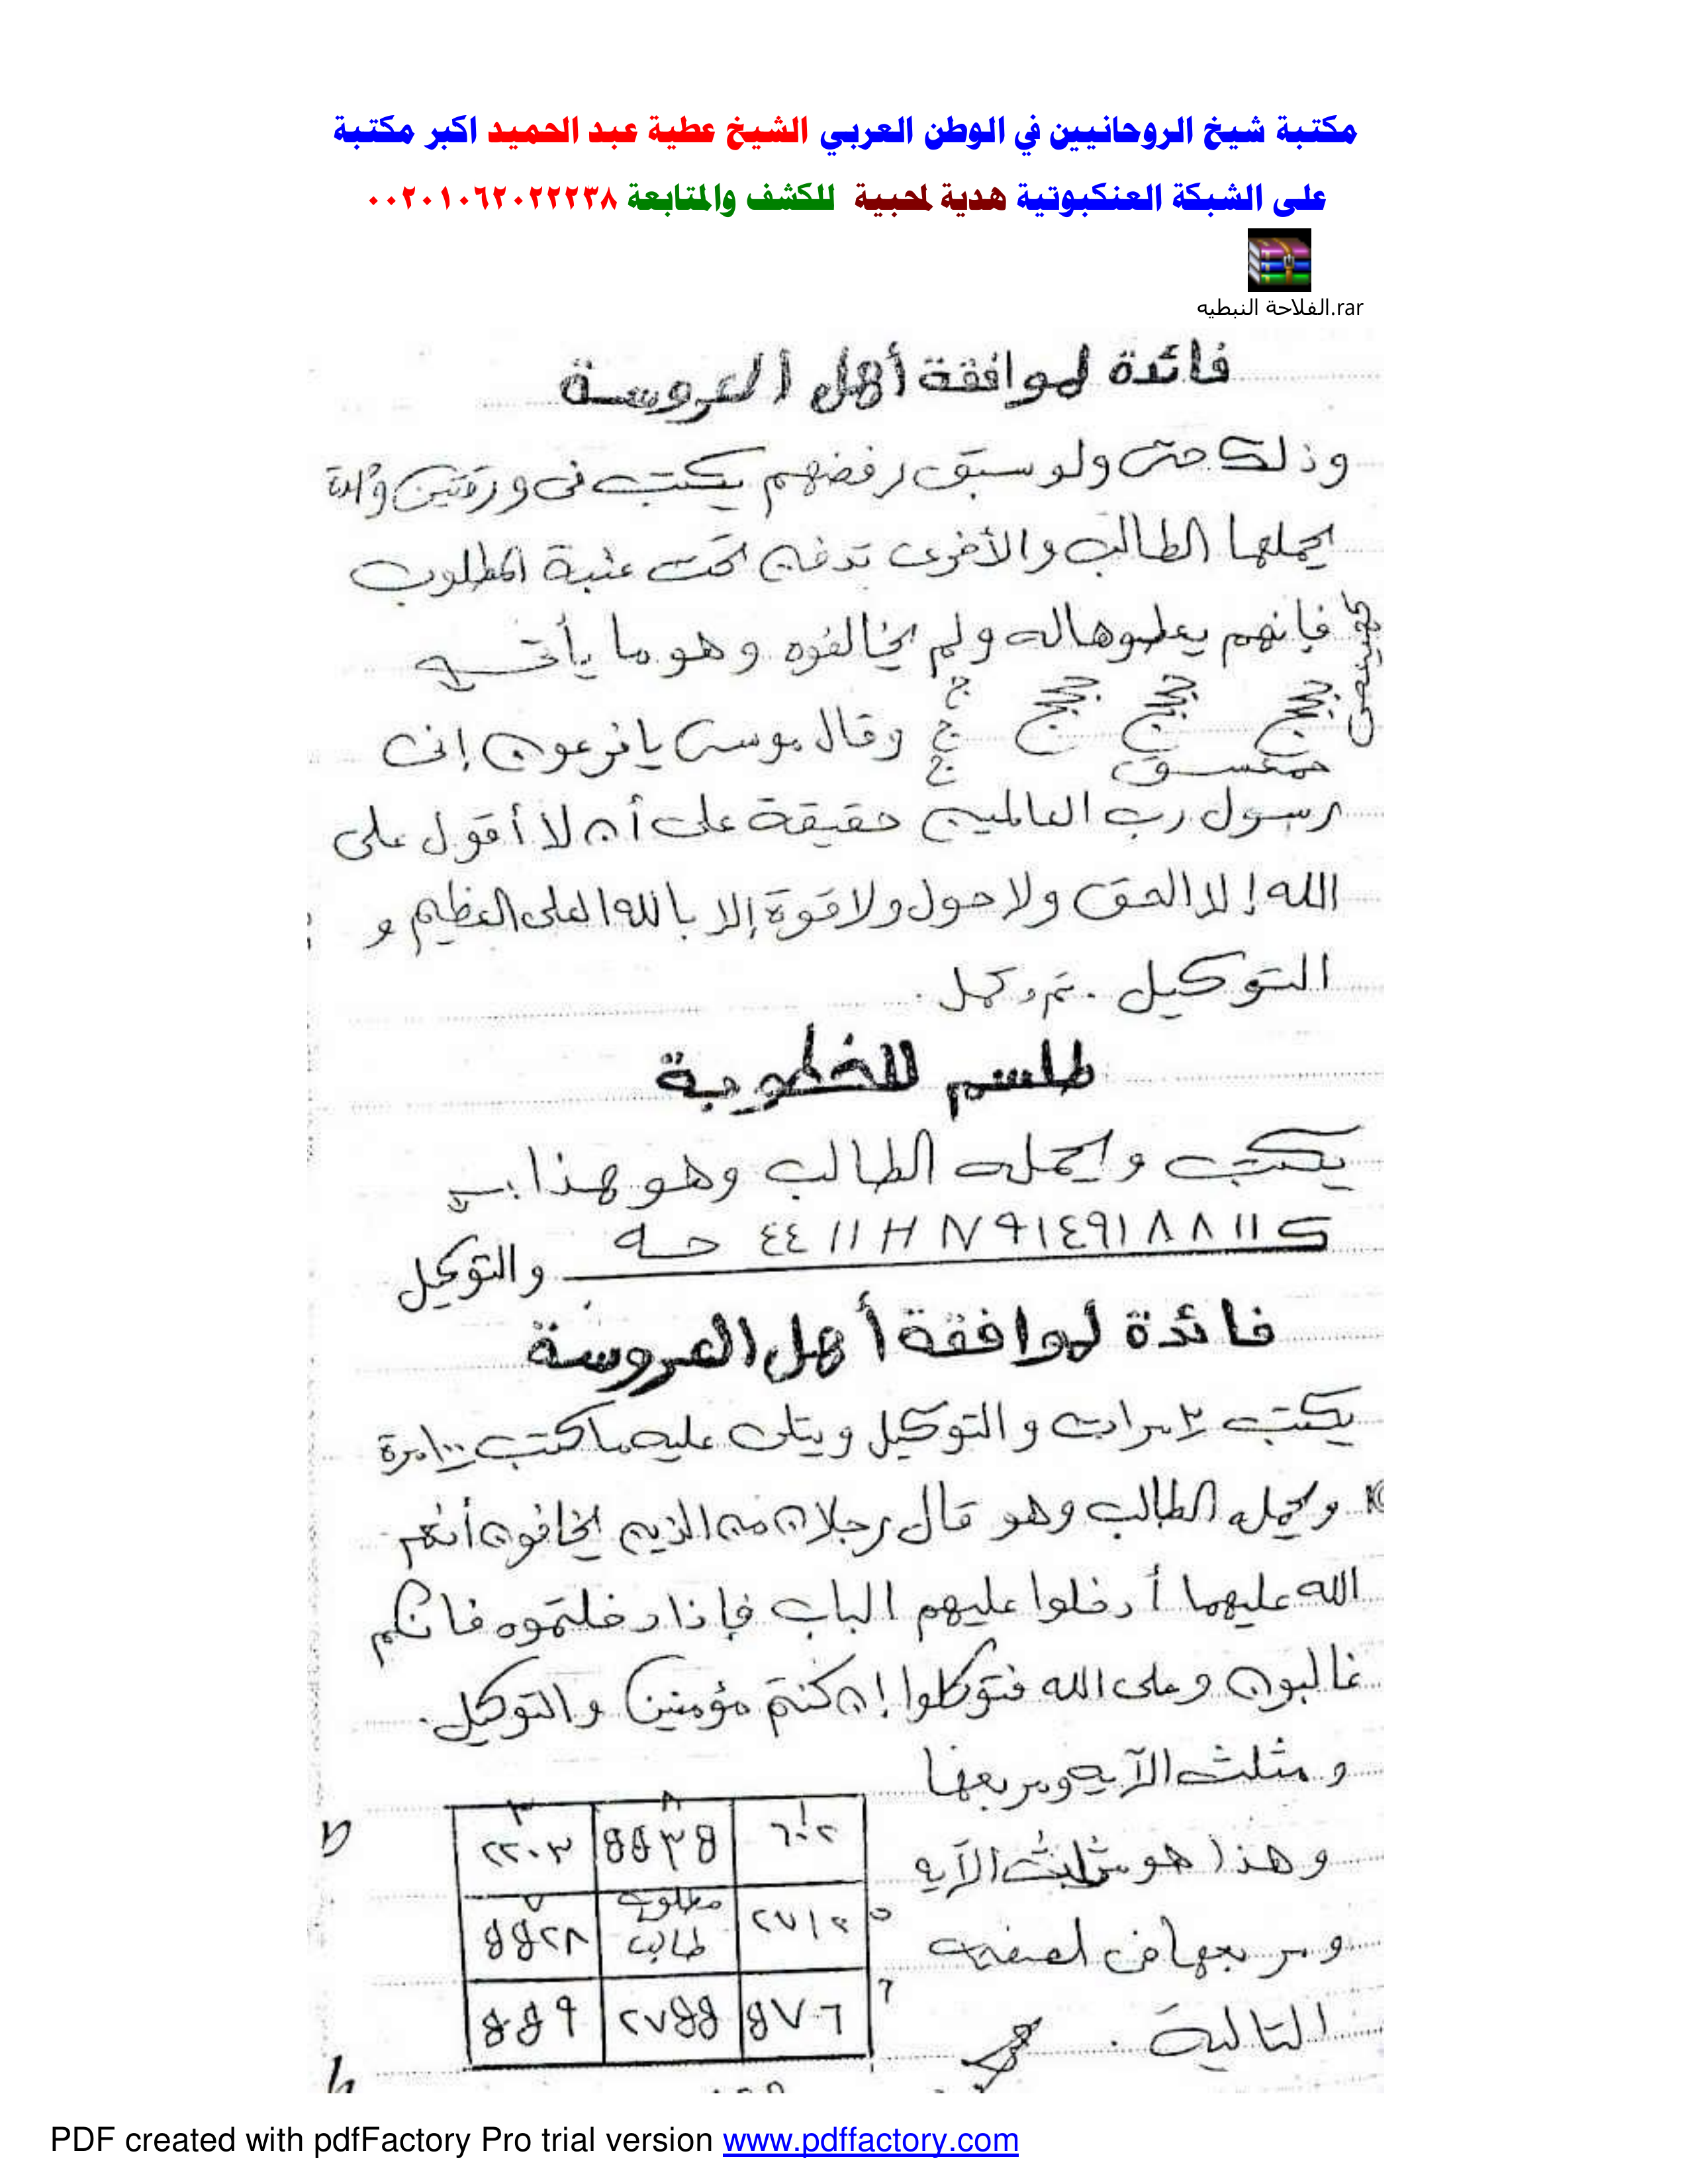 مكتبة شيخ الروحانيين في الوطن العربي الشيخ عطية عبد الحميد اكبر مكتبة
على الشبكة العنكبوتية هدية لمحبية للكشف والمتابعة ٠٠٢٠١٠٦٢٠٢٢٢٣٨
الفلاحة النبطيه.rar
فائدة لموافقة أهل العروسة
وذلك حتى ولو سبق رفضهم يكتب فى ورقتين واحدة
يحملها الطالب والأخرى تدفن تحت عتبة المطلوب
فإنهم يعطوها له ولم يخالفوه وهو ما يأتى
كهيعص
ججج ججج ججج ج ج ج وقال موسى يا فرعون إنى
حمعسق
رسول رب العالمين حقيقة على أن لا أقول على
الله إلا الحق ولا حول ولا قوة إلا بالله العلى العظيم و
التوكيل . تم وكمل .
طلسم للخطوبة
يكتب ويحمله الطالب وهو هذا
ك ١١ ٨ ٨ ١٩٤١٩ N H ١١ ٤٤ حه والتوكيل
فائدة لموافقة أهل العروسة
يكتب ٢ مرات والتوكيل ويتلى عليه ما كتب ١٠٠ مرة
ويحمله الطالب وهو قال رجلان من الذين يخافون أنعم
الله عليهما أدخلوا عليهم الباب فإذا دخلتموه فانكم
غالبون وعلى الله فتوكلوا إن كنتم مؤمنين والتوكيل .
ومثلث الآيه ومربعها
وهذا هو مثلث الآيه
ومربعها فى
التالية .
مطلوب
طالب
PDF created with pdfFactory Pro trial version www.pdffactory.com